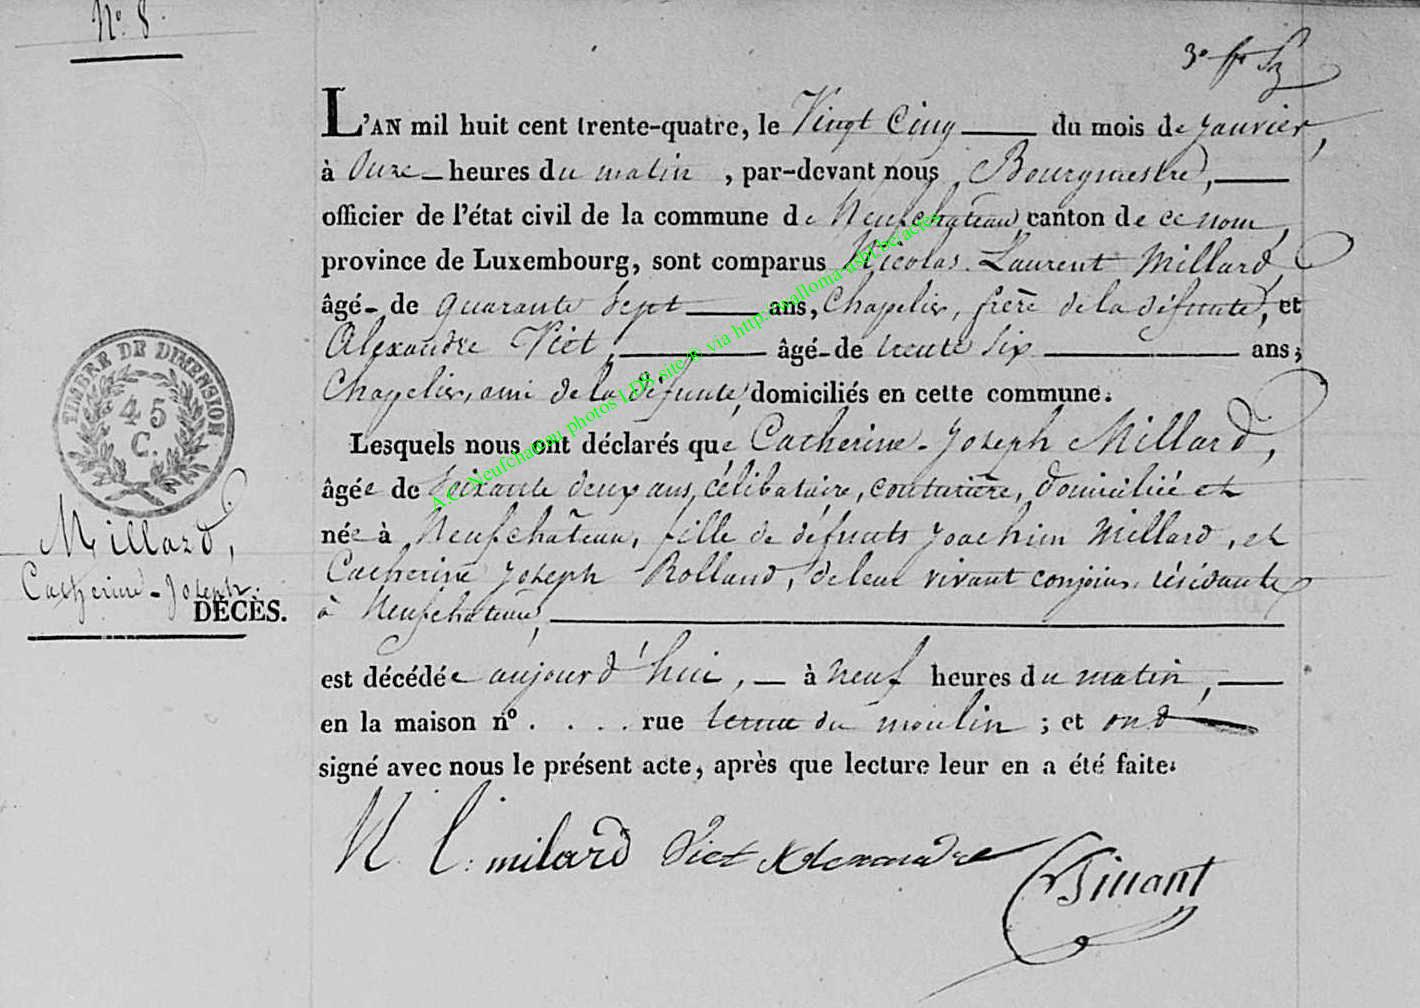 N° 8
3e
L'AN mil huit cent trente-quatre, le Vingt Cinq du mois de Janvier,
à Onze heures du matin, par-devant nous Bourgmestre,
officier de l'état civil de la commune de Neufchateau canton de ce nom,
province de Luxembourg, sont comparus Nicolas Laurent Millard,
âgé de quarante Sept ans, Chapelier, frère de la défunte, et
Alexandre Piet, âgé de trente Six ans;
Chapelier, ami de la défunte, domiciliés en cette commune.
Lesquels nous ont déclarés que Catherine-Joseph Millard,
âgée de Soixante deux ans, célibataire, couturière, domiciliée et
née à Neufchâteau, fille de défunts Joachim Millard, et
Catherine Joseph Rolland, de leur vivant conjoins résidants
à Neufchateau,
est décédée aujourd'hui, à neuf heures du matin,
en la maison n° . . . . rue du moulin ; et ont
signé avec nous le présent acte, après que lecture leur en a été faite.
TIMBRE DE DIMENSION
45
C.
Millard,
Catherine-Joseph.
DÉCÈS.
N. L. milard Piet Alexandre
A.C. Neufchateau photos LDB site © via http://walloma-asbl.be/actes